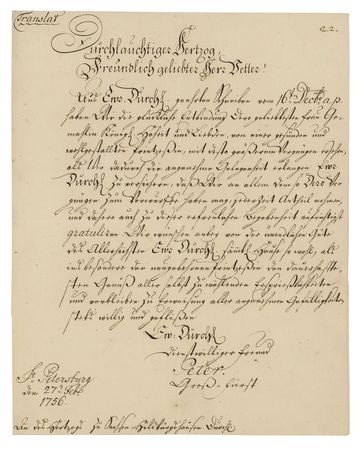 Translat
22.
Durchlauchtiger Hertzog,
Freundlich geliebter Herr Vetter!
Aus Ewr. Durchl. geehrten Schreiben vom 10. Decbr. a. p.
haben Wir die glückliche Entbindung Dero geliebtesten Frau Ge-
mahlin Königl. Hoheit und Liebden, von einer gesunden und
wohlgestallten Printzeßin, mit desto größerm Vergnügen ersehen,
als Wir dadurch die angenehme Gelegenheit erlangen Ewr.
Durchl. zu versichern, daß Wir an allem dem so Dero Ver-
gnügen zum haben mag, jederzeit Antheil nehmen,
und dahero auch zu dieser erfreulichen Begebenheit aufrichtigst
gratuliren. Wir wünschen anbey von der unendlichen Güte
des Allerhöchsten Ewr. Durchl. Hause so wohl, als
ins besondere der neugebohrnen Printzeßin den dauerhaffte-
sten Genuß aller selbst zu
und verbleiben zu Erweisung aller angenehmen Gefälligkeiten
stets willig und geflißen
Ewr. Durchl.
Dienstwilliger Freund
Peter
Groß-Fürst
St. Petersburg
den 27. Febr.
1756.
An des Hertzogs zu Sachsen Hildburghausen Durchl.